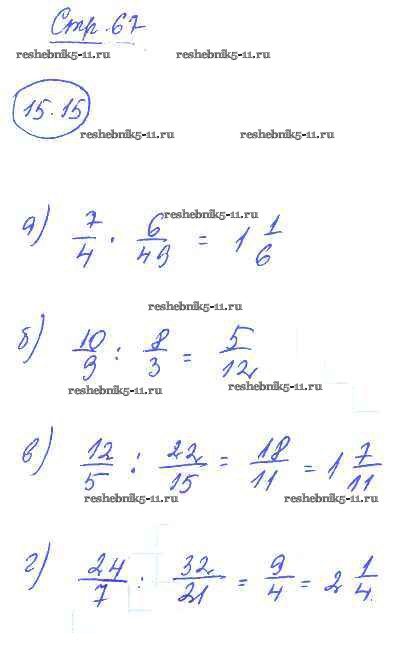 Стр. 67
reshebnik5-11.ru reshebnik5-11.ru
15.15
reshebnik5-11.ru reshebnik5-11.ru
reshebnik5-11.ru
а) 7/4 · 6/49 = 1 1/6
reshebnik5-11.ru
б) 10/9 : 8/3 = 5/12
reshebnik5-11.ru reshebnik5-11.ru
в) 12/5 : 22/15 = 18/11 = 1 7/11
reshebnik5-11.ru reshebnik5-11.ru
г) 24/7 : 32/21 = 9/4 = 2 1/4.